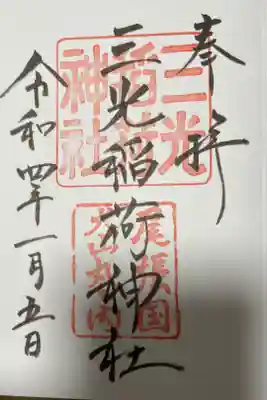 奉拝
三光稲荷神社
令和四年一月五日
三光
稲荷
神社
尾張国
犬山丸内